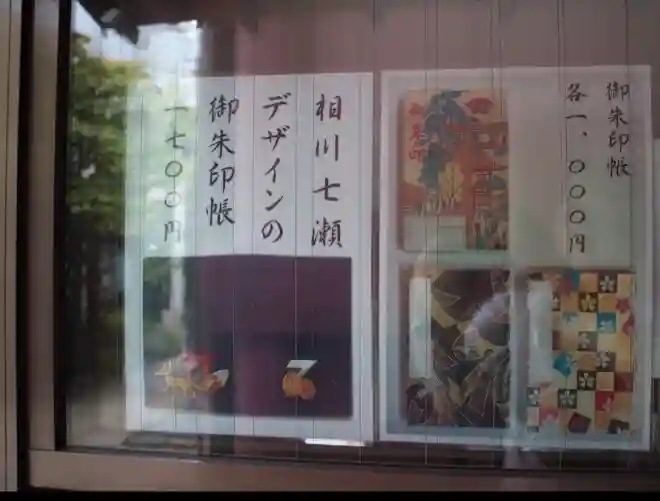 御朱印帳
各一、〇〇〇円
相川七瀬
デザインの
御朱印帳
一七〇〇円